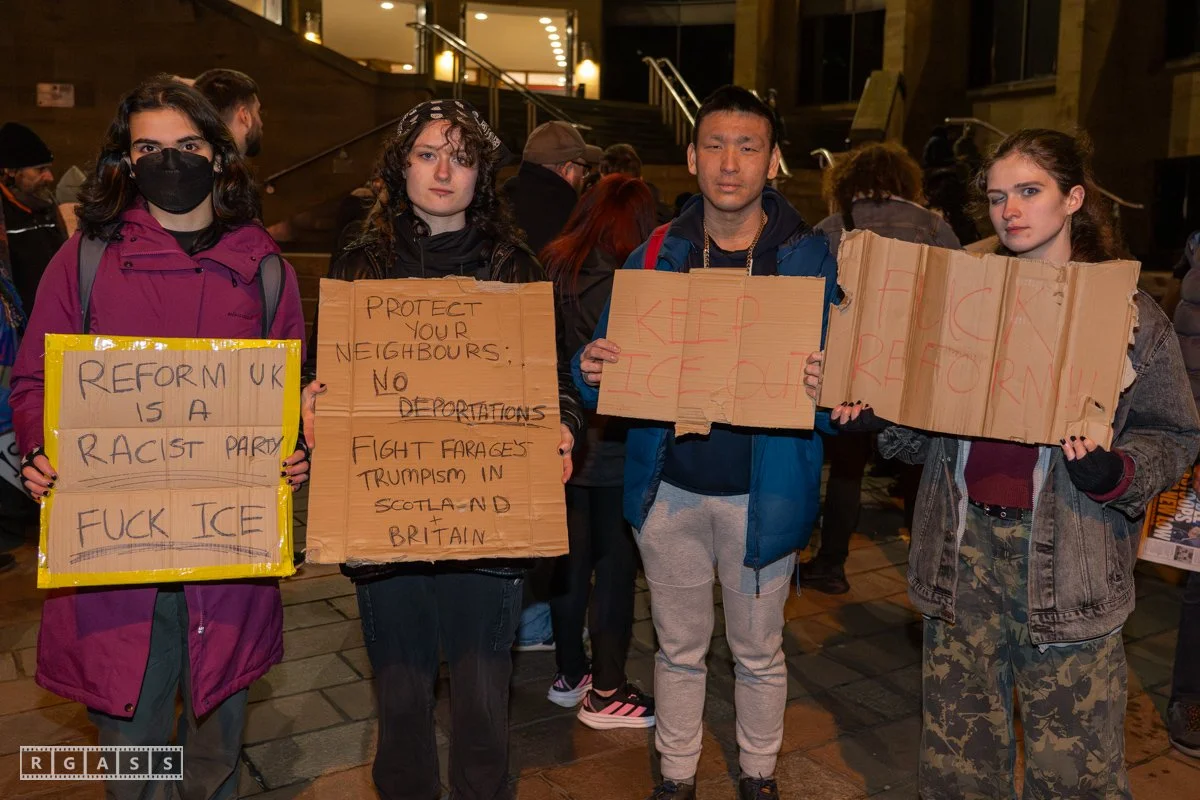 REFORM UK
IS A
RACIST PARTY
FUCK ICE
PROTECT
YOUR
NEIGHBOURS;
NO
DEPORTATIONS
FIGHT FARAGE'S
TRUMPISM IN
SCOTLAND
+
BRITAIN
KEEP
ICE OUT
FUCK
REFORM!!
RGASS